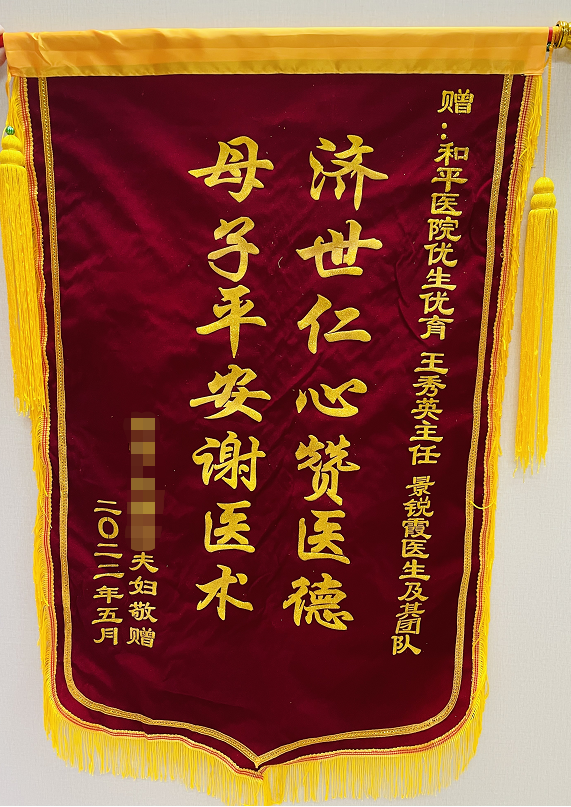 赠：和平医院优生优育 王秀英主任 景锐霞医生及其团队
济世仁心赞医德
母子平安谢医术
夫妇敬赠
二〇二二年五月